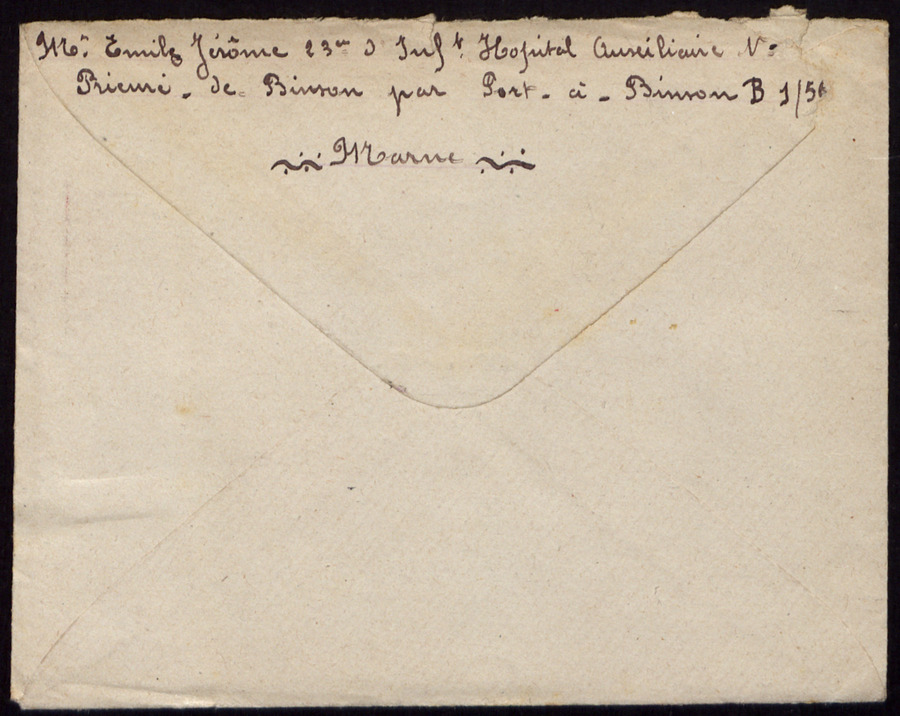 Mr Emile Jérôme 23me d Inft Hopital Auxiliaire No
Prieuré - de - Binson par Port - à - Binson B 1/56
Marne